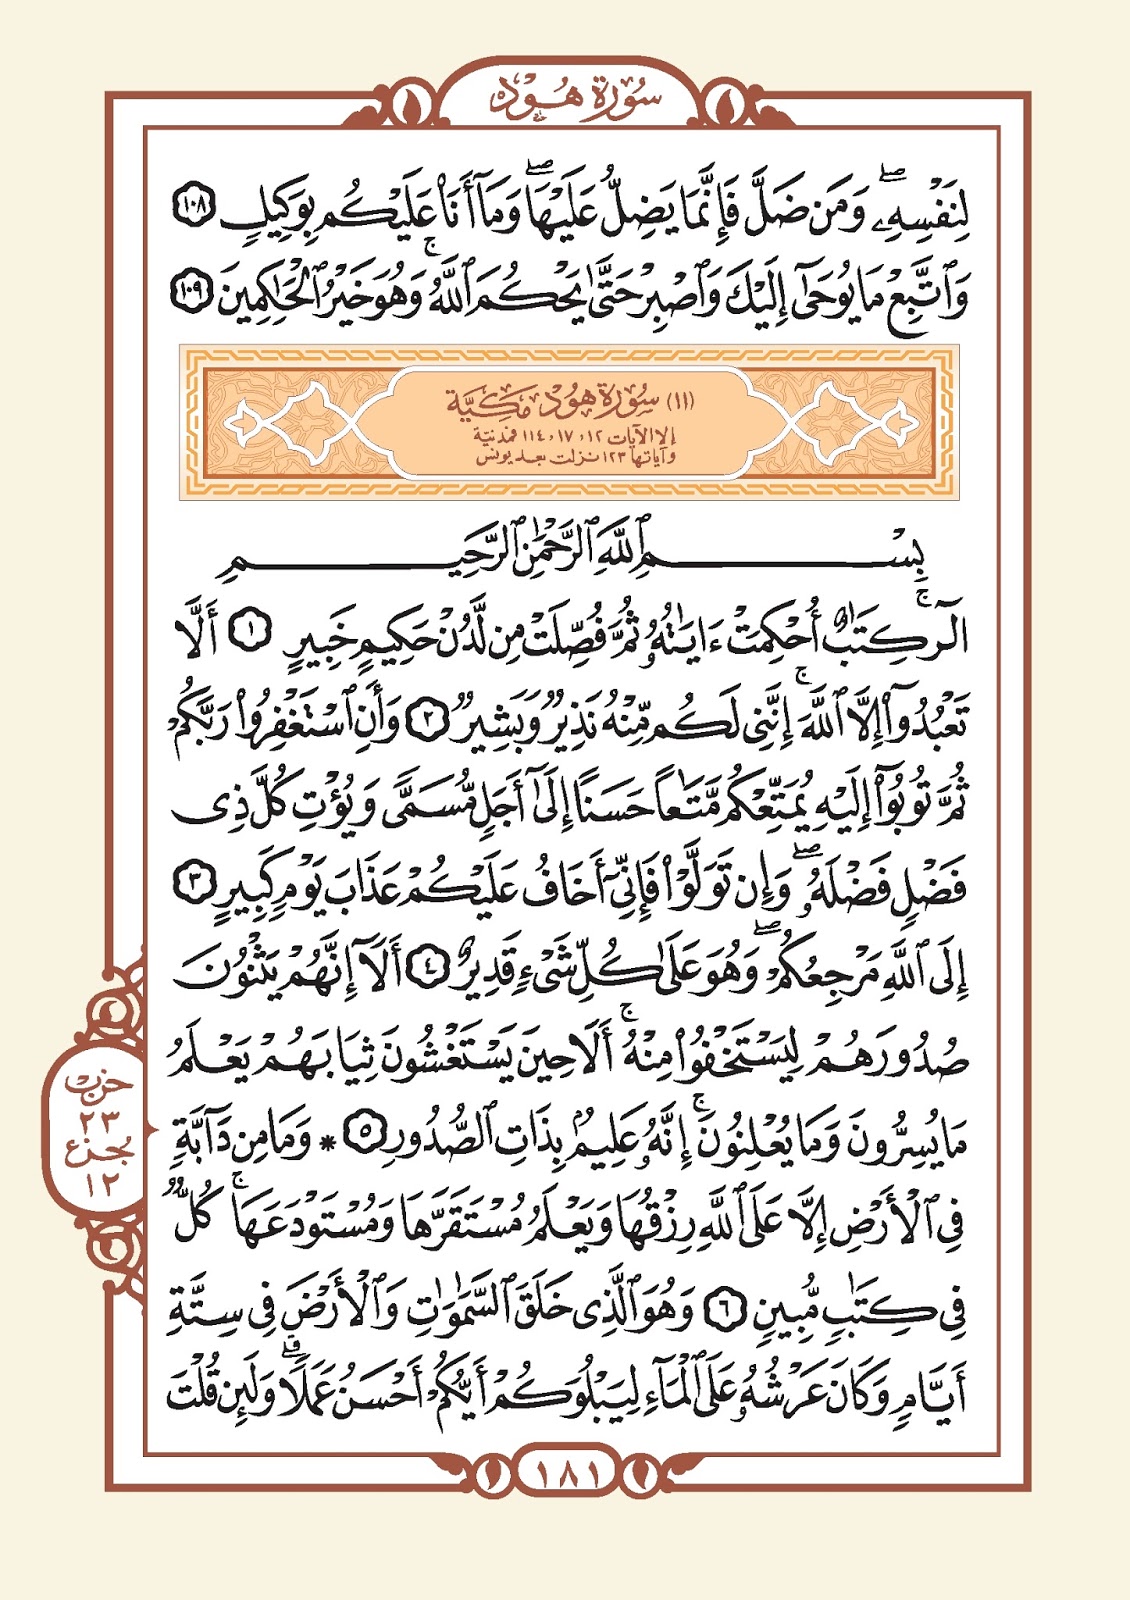 سُورَةُ هُودٍ
لِنَفْسِهِۦۖ وَمَن ضَلَّ فَإِنَّمَا يَضِلُّ عَلَيْهَاۖ وَمَآ أَنَا۠ عَلَيْكُم بِوَكِيلٍ ١٠٨
وَٱتَّبِعْ مَا يُوحَىٰٓ إِلَيْكَ وَٱصْبِرْ حَتَّىٰ يَحْكُمَ ٱللَّهُۚ وَهُوَ خَيْرُ ٱلْحَٰكِمِينَ ١٠٩
(١١) سُورَةُ هُودٍ مَكِّيَّة
إلا الآيات ١٢، ١٧، ١١٤ فمدنيّة
وآياتها ١٢٣ نزلت بعد يونس
بِسْمِ ٱللَّهِ ٱلرَّحْمَٰنِ ٱلرَّحِيمِ
الٓرۚ كِتَٰبٌ أُحْكِمَتْ ءَايَٰتُهُۥ ثُمَّ فُصِّلَتْ مِن لَّدُنْ حَكِيمٍ خَبِيرٍ ١ أَلَّا
تَعْبُدُوٓا۟ إِلَّا ٱللَّهَۚ إِنَّنِى لَكُم مِّنْهُ نَذِيرٌ وَبَشِيرٌ ٢ وَأَنِ ٱسْتَغْفِرُوا۟ رَبَّكُمْ
ثُمَّ تُوبُوٓا۟ إِلَيْهِ يُمَتِّعْكُم مَّتَٰعًا حَسَنًا إِلَىٰٓ أَجَلٍ مُّسَمًّى وَيُؤْتِ كُلَّ ذِى
فَضْلٍ فَضْلَهُۥۖ وَإِن تَوَلَّوْا۟ فَإِنِّىٓ أَخَافُ عَلَيْكُمْ عَذَابَ يَوْمٍ كَبِيرٍ ٣
إِلَى ٱللَّهِ مَرْجِعُكُمْۖ وَهُوَ عَلَىٰ كُلِّ شَىْءٍ قَدِيرٌ ٤ أَلَآ إِنَّهُمْ يَثْنُونَ
صُدُورَهُمْ لِيَسْتَخْفُوا۟ مِنْهُۚ أَلَا حِينَ يَسْتَغْشُونَ ثِيَابَهُمْ يَعْلَمُ
مَا يُسِرُّونَ وَمَا يُعْلِنُونَۚ إِنَّهُۥ عَلِيمٌۢ بِذَاتِ ٱلصُّدُورِ ٥ * وَمَا مِن دَآبَّةٍ
فِى ٱلْأَرْضِ إِلَّا عَلَى ٱللَّهِ رِزْقُهَا وَيَعْلَمُ مُسْتَقَرَّهَا وَمُسْتَوْدَعَهَاۚ كُلٌّ
فِى كِتَٰبٍ مُّبِينٍ ٦ وَهُوَ ٱلَّذِى خَلَقَ ٱلسَّمَٰوَٰتِ وَٱلْأَرْضَ فِى سِتَّةِ
أَيَّامٍ وَكَانَ عَرْشُهُۥ عَلَى ٱلْمَآءِ لِيَبْلُوَكُمْ أَيُّكُمْ أَحْسَنُ عَمَلًاۗ وَلَئِن قُلْتَ
حزب
٢٣
جزء
١٢
١٨١